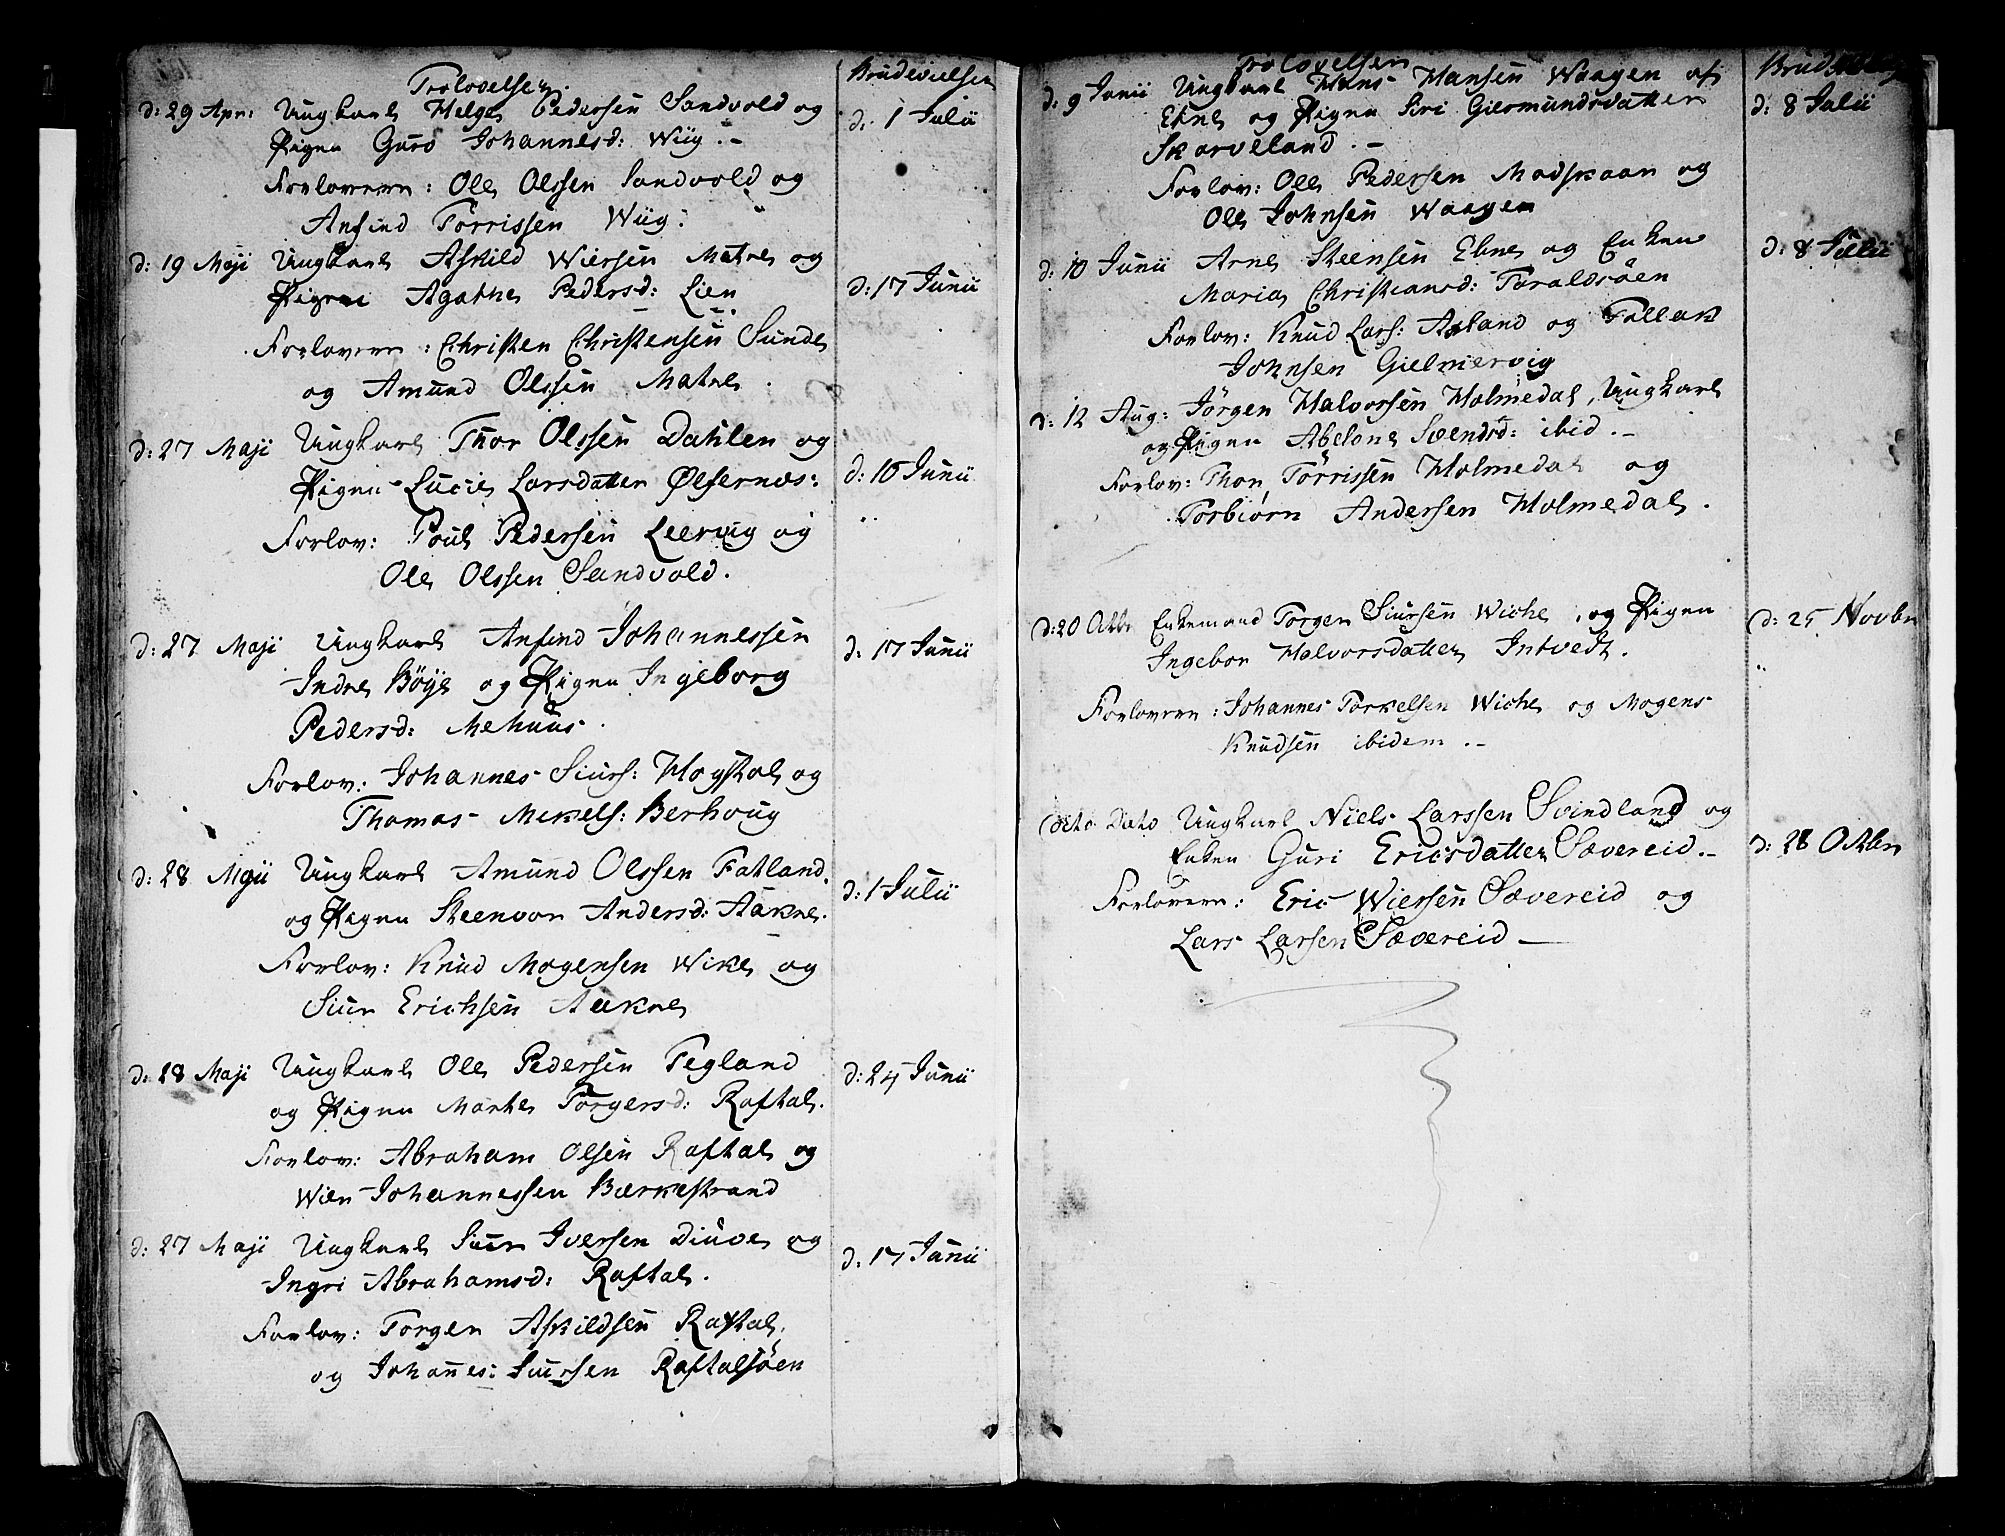 Trolovelser.
Brudevielsen
d: 29 Apr: Ungkarl Helge Pedersen Sandvold og
d. 1 Julii
Pigen Guro Johannesd: Wiig.-
Forlovere: Ole Olssen Sandvold og
Anfind Torrissen Wiig.
d: 19 Maji Ungkarl Askild Wiersen Matre og
d: 17 Junii
Pigen Agathe Pedersd: Lien
Forlovere: Christen Christensen Sunde
og Amund Olssen Matre.
d: 27 Maji Ungkarl Thor Olssen Dahlen og
d: 10 Junii
Pigen Lucie Larsdatter Ølfernæs:
Forlov: Poul Pedersen Leervig og
Ole Olssen Sandvold.
d: 27 Maji Ungkarl Anfind Johannessen
d: 17 Junii
Indre Böye og Pigen Ingeborg
Pedersd: Mehuus.
Forlov: Johannes Siurs: Hogstal og
Thomas Mekels: Berhoug
d: 28 Maji Ungkarl Amund Olssen Fatland.
d: 1 Julii
og Pigen Steenvor Andersd: Aakre.
Forlov: Knud Mogensen Wike og
Siur Erichsen Aakre
d: 28 Maji Ungkarl Ole Pedersen Tegland
d: 24 Junii
og Pigen Marthe Torgersd: Raftal.
Forlov: Abraham Olsen Raftal og
Wier Johannessen Bærkestrand
d: 27 Maji Ungkarl Siur Iversen Diuve og
d: 17 Junii
Ingri Abrahamsd: Raftal.
Forlov: Torger Askildsen Raftal,
og Johanes: Siursen Raftalsöen
Trolovelsen
d: 9 Junii Ungkarl Hans Hansen Waagen af
d: 8 Julii
Ebne og Pigen Siri Giermundsdatter
Skarveland.-
Forlov: Ole Pedersen Madskaar og
Ole Johnsen Waagen
d: 10 Junii Arne Steensen Ebne og Enken
d: 8 Julii
Maria Christiansd: Taraldsöen
Forlov: Knud Lars: Axland og Tollak
Johnsen Gielmervig
d: 12 Aug: Jörgen Halvorsen Holmedal, Ungkarl
og Pigen Abelone Svendsd: ibid.-
Forlov: Thor Törrissen Holmedal og
Torbiørn Andersen Holmedal.
d: 20 Octbr Enkemand Torger Siursen Wiche, og Pigen
d: 25 Novbr
Ingebor Halvorsdatter Intvedt.
Forlovere: Johannes Torkelsen Wiche og Mogens
Knudsen ibidem.-
dito Dato Ungkarl Niels Larssen Svindland og
d: 28 Octbr
Enken Guri Ericsdatter Sævereid.-
Forlovere: Eric Wiersen Sævereid og
Lars Larsen Sævereid